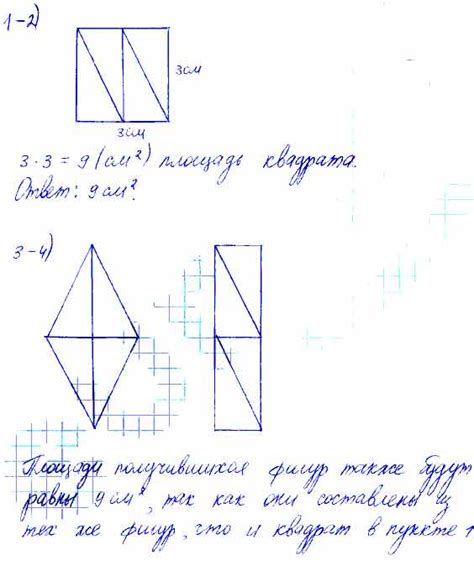 1-2)
3см
3см
3·3=9(см²) площадь квадрата.
Ответ: 9см².
3-4)
Площади получившихся фигур также будут
равны 9см², так как они составлены из
тех же фигур, что и квадрат в пункте 1